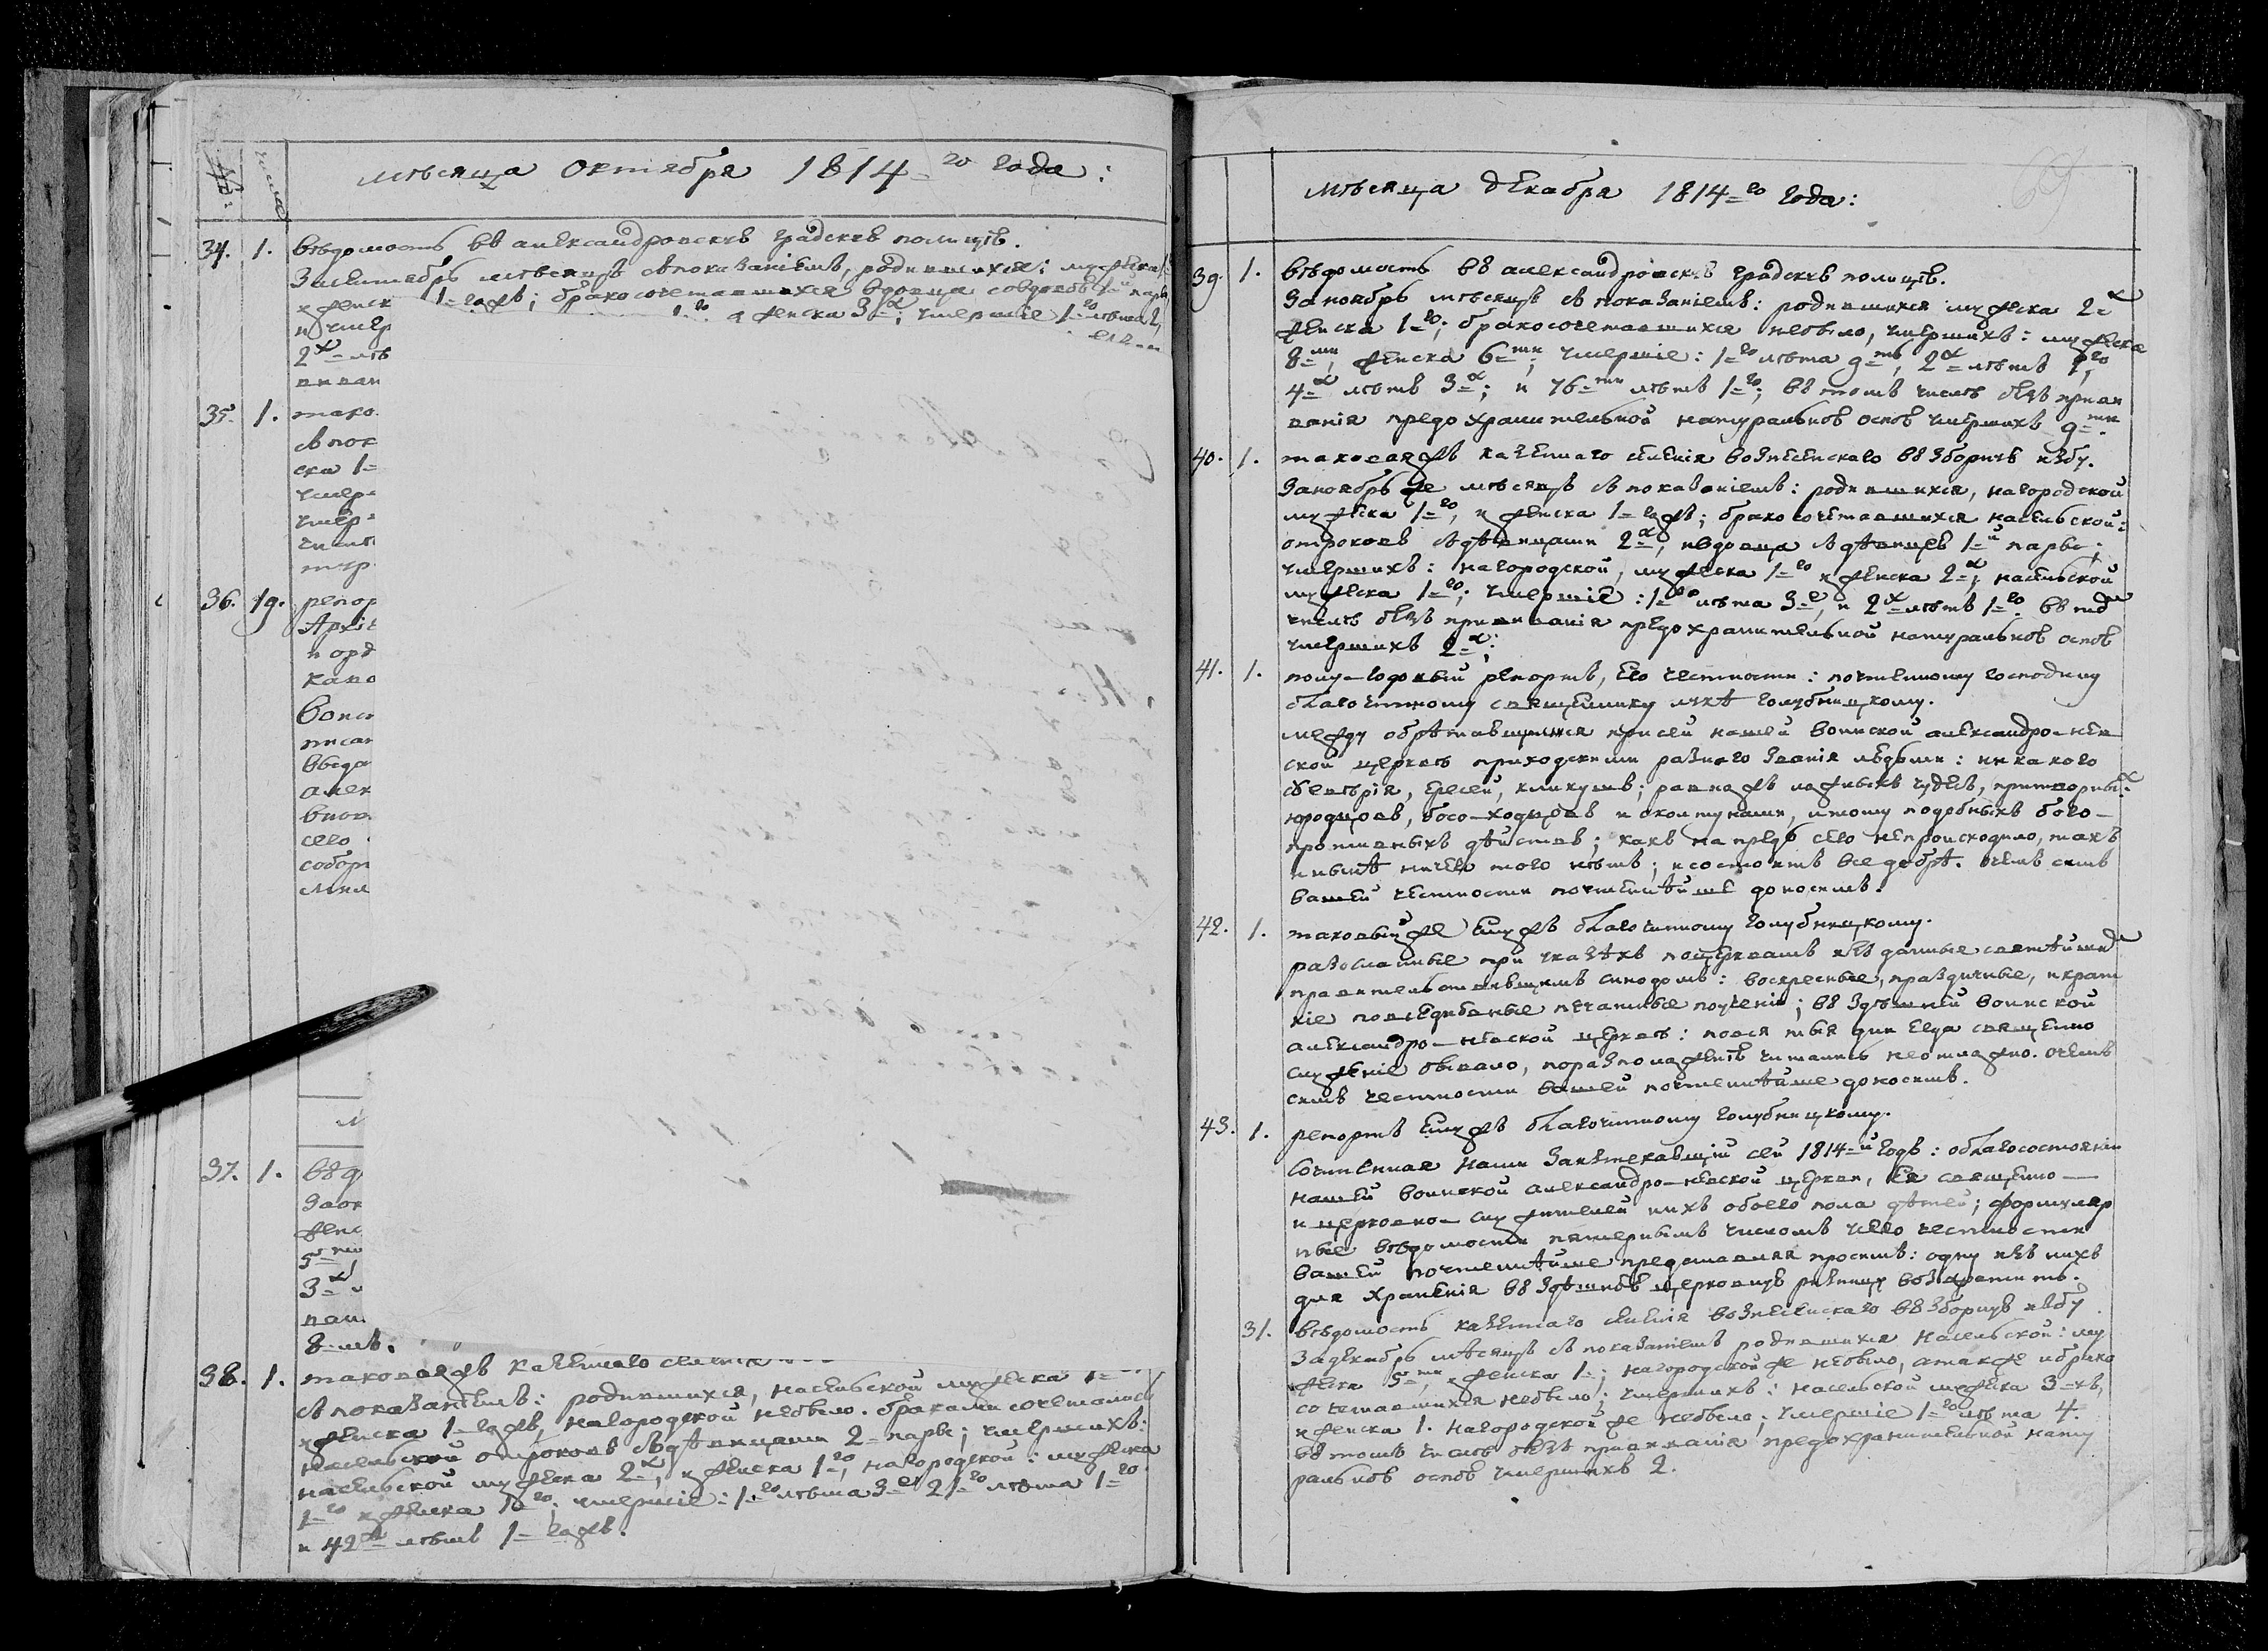 №: число
мѣсяца октября 1814=го года:
34. 1. вѣдомость въ александровскѣ градскѣ полицѣ.
Засентябрь мѣсяцъ съпоказаніемъ, родившихся: мужеска
и женск 1=гожъ; бракосочетавшихся вдовца совдовою 1=й пара
и умер 1=го и женска 3=х; умершіе 1=го лѣта 2,
2=х лѣ
виван
35. 1. тако
съпок
ска 1=
умер
умер
числ
тур
36. 19. репор
Архіе
и орд
кано
Воис
писан
введ
алек
вно
сего
собор
мкл
М
37. 1. въд
Заок
женс
5=ти
3=х
нат
8=мъ.
38. 1. таковаяжъ казеннаго селенія
съ показаніемъ: родившихся, насельской мужеска 1=
и женска 1=гожъ, нагородской небыло. браками сочеталось
насельской отроковъ съдѣвицами 2= пары; умершихъ:
насельской мужеска 2=х, и женска 1=го, нагородской: мужеска
1=го и женска 1=го; умершіе: 1=го лѣта 3=е 21=го лѣта 1=го
и 42=х лѣтъ 1=гожъ.
мѣсяца декабря 1814=го года:
39. 1. вѣдомость въ александровскѣ градскѣ полицѣ.
Заноябрь мѣсяцъ съ показаніемъ: родившихся мужеска 2=х
женска 1=го; бракосочетавшихся небыло, умершихъ: мужеска
8=ми, женска 6=ти; умершіе: 1=го лѣта 9=ть, 2=х лѣтъ 1=го
4=х лѣтъ 3=х; и 76=ти лѣтъ 1=го; въ томъ числѣ безъ приви
ванія предохранительной натуральнов оспов умершихъ 9=ти.
40. 1. таковаяжъ казеннаго селенія вознесенскаго въ Зборнѣ избу.
Заноябрь же мѣсяцъ съ показаніемъ: родившихся, нагородской
мужеска 1=го, и женска 1=гожъ; бракосочетавшихся насельской:
отроковъ съдѣвицами 2=х, ивдовца съдѣвицев 1=й пары;
умершихъ: нагородской, мужеска 1=го и женска 2=х; насельской
мужеска 1=го; умершіе: 1=го лѣта 3=е, и 2=х лѣтъ 1=го въ том
числѣ безъ прививанія предохранительной натуральнов оспов
умершихъ 2=х;
41. 1. полу-годовый репортъ, Его честности: почтенному господину
благочинному священнику лукѣ голубницкому.
между обрѣтавщимися присей нашей воинской александро-нев
ской церквѣ приходскими разнаго званія людьми: никакого
суевѣрія, ересей, кликушъ; равножъ ложныхъ чудесъ, притворных
юродцовъ, босо-ходцовъ и сколтунами, итому подобныхъ бого-
противныхъ дѣйствъ; какъ напредъ сего непроисходило, такъ
инынѣ ничего того нѣтъ; исостоитъ все добрѣ. очемъ симъ
вашей честности почтеннѣйше доносимъ.
42. 1. таковыйже Емужъ благочинному голубницкому.
разосланные при указѣхъ поцерквамъ изъ данные святѣйшим
правительствующимъ синодомъ: воскресные, праздичные, икрат
кіе повседневные печатные поученіи; въ здѣшней воинской
александро-невской церквѣ: повся тыя дни егда священно
служеніе бывало, поразположеніѣ читались неотложно. очемъ
симъ честности вашей почтеннѣйше доносимъ.
43. 1. репортъ Емужъ благочинному голубницкому.
Сочиненная нами Заизтекавщій сей 1814=й годъ: облагосостояніи
нашей воинской александро-невской церкви, Ея священно—
и церковно-служителей иихъ обоего пола дѣтей; формуляр
ные вѣдомости пятернымъ числомъ честности
вашей почтеннѣйше представляя просимъ: одну изъ нихъ
для храненія въ здѣшнѣв церковнув ризницу возвратить.
31. вѣдомость казеннаго селенія вознесенскаго въ Зборнув избу
Задекабрь мѣсяцъ съ показаніемъ родившихся насельской: му
жеска 5=ти, и женска 1=; нагородской же небыло, атакже ибрако
сочетавшихся небыло; умершихъ: насельской мужеска 3=хъ,
и женска 1. нагородской же небыло; умершіе 1=го лѣта 4.
въ томъ числѣ безъ прививанія предохранительной нату
ральнов оспов умершихъ 2.